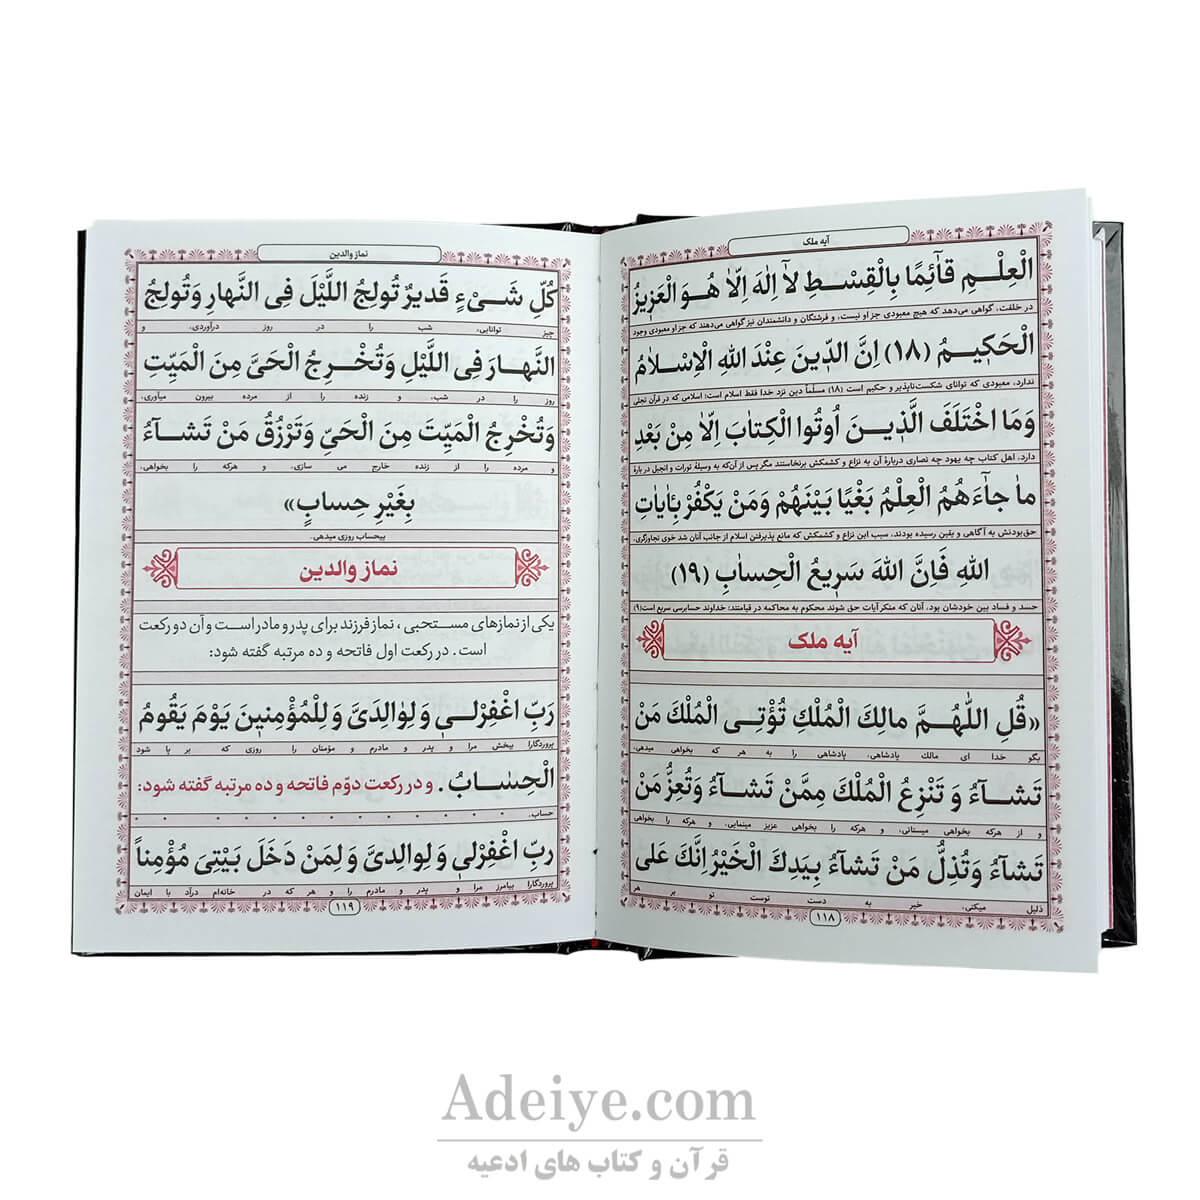 آیه ملک
الْعِلْمِ قآئِمًا بِالْقِسْطِ لآ اِلٰهَ اِلّا هُوَ الْعَزیزُ
در خلقت، گواهی می‌دهد که هیچ معبودی جز او نیست، و فرشتگان و دانشمندان نیز گواهی می‌دهند که جز او معبودی وجود
الْحَکیمُ (۱۸) اِنَّ الدّینَ عِنْدَ اللهِ الْاِسْلامُ
ندارد، معبودی که توانای شکست‌ناپذیر و حکیم است (۱۸) مسلّماً دین نزد خدا فقط اسلام است؛ اسلامی که در قرآن تجلی
وَمَا اخْتَلَفَ الَّذینَ اُوتُوا الْکِتابَ اِلّا مِنْ بَعْدِ
دارد، اهل کتاب چه یهود چه نصاری دربارهٔ آن به نزاع و کشمکش برنخاستند مگر پس از آن‌که به وسیلهٔ تورات و انجیل در بارهٔ
ما جآءَهُمُ الْعِلْمُ بَغْیًا بَیْنَهُمْ وَمَنْ یَکْفُرْ بِاٰیاتِ
حق‌بودنش به آگاهی و یقین رسیده بودند، سبب این نزاع و کشمکش که مانع پذیرفتن اسلام از جانب آنان شد خوی تجاوزگری،
اللهِ فَاِنَّ اللهَ سَریعُ الْحِسابِ (۱۹)
حسد و فساد بین خودشان بود، آنان که منکر آیات حق شوند محکوم به محاکمه در قیامتند؛ خداوند حسابرسی سریع است(۹)
آیه ملک
«قُلِ اللّٰهُمَّ مالِكَ الْمُلْكِ تُؤْتِی الْمُلْكَ مَنْ
بگو خدا ای مالك پادشاهی، پادشاهی را به هر که بخواهی میدهی،
تَشآءُ وَ تَنْزِعُ الْمُلْكَ مِمَّنْ تَشآءُ وَتُعِزُّ مَنْ
و از هرکه بخواهی میستانی، و هرکه را بخواهی عزیز مینمایی، و هرکه را بخواهی
تَشآءُ وَتُذِلُّ مَنْ تَشآءُ بِیَدِكَ الْخَیْرُ اِنَّكَ عَلی
ذلیل میکنی، خیر به دست توست تو بر هر
۱۱۸
نماز والدین
کُلِّ شَیْءٍ قَدیرٌ تُولِجُ اللَّیْلَ فِی النَّهارِ وَتُولِجُ
چیز توانایی، شب را در روز درآوردی، و
النَّهارَ فِی اللَّیْلِ وَتُخْرِجُ الْحَیَّ مِنَ الْمَیِّتِ
روز را در شب، و زنده را از مرده بیرون میآوری،
وَتُخْرِجُ الْمَیِّتَ مِنَ الْحَیِّ وَتَرْزُقُ مَنْ تَشآءُ
و مرده را از زنده خارج می سازی، و هرکه را بخواهی،
بِغَیْرِ حِسابٍ»
بیحساب روزی میدهی.
نماز والدین
یکی از نمازهای مستحبی ، نماز فرزند برای پدر و مادر است و آن دو رکعت
است . در رکعت اول فاتحه و ده مرتبه گفته شود:
رَبِّ اغْفِرْلی وَ لِوالِدَیَّ وَ لِلْمُؤْمِنینَ یَوْمَ یَقُومُ
پروردگارا ببخش مرا و پدر و مادرم و مؤمنان را روزی که بر پا شود
الْحِسابُ . و در رکعت دوّم فاتحه و ده مرتبه گفته شود:
حساب.
ربِّ اغْفِرْلی وَ لِوالِدَیَّ وَ لِمَنْ دَخَلَ بَیْتِیَ مُؤْمِناً
پروردگارا بیامرز مرا و پدر و مادرم را و هر که در خانه‌ام درآد با ایمان
۱۱۹
Adeiye.com
قرآن و کتاب های ادعیه